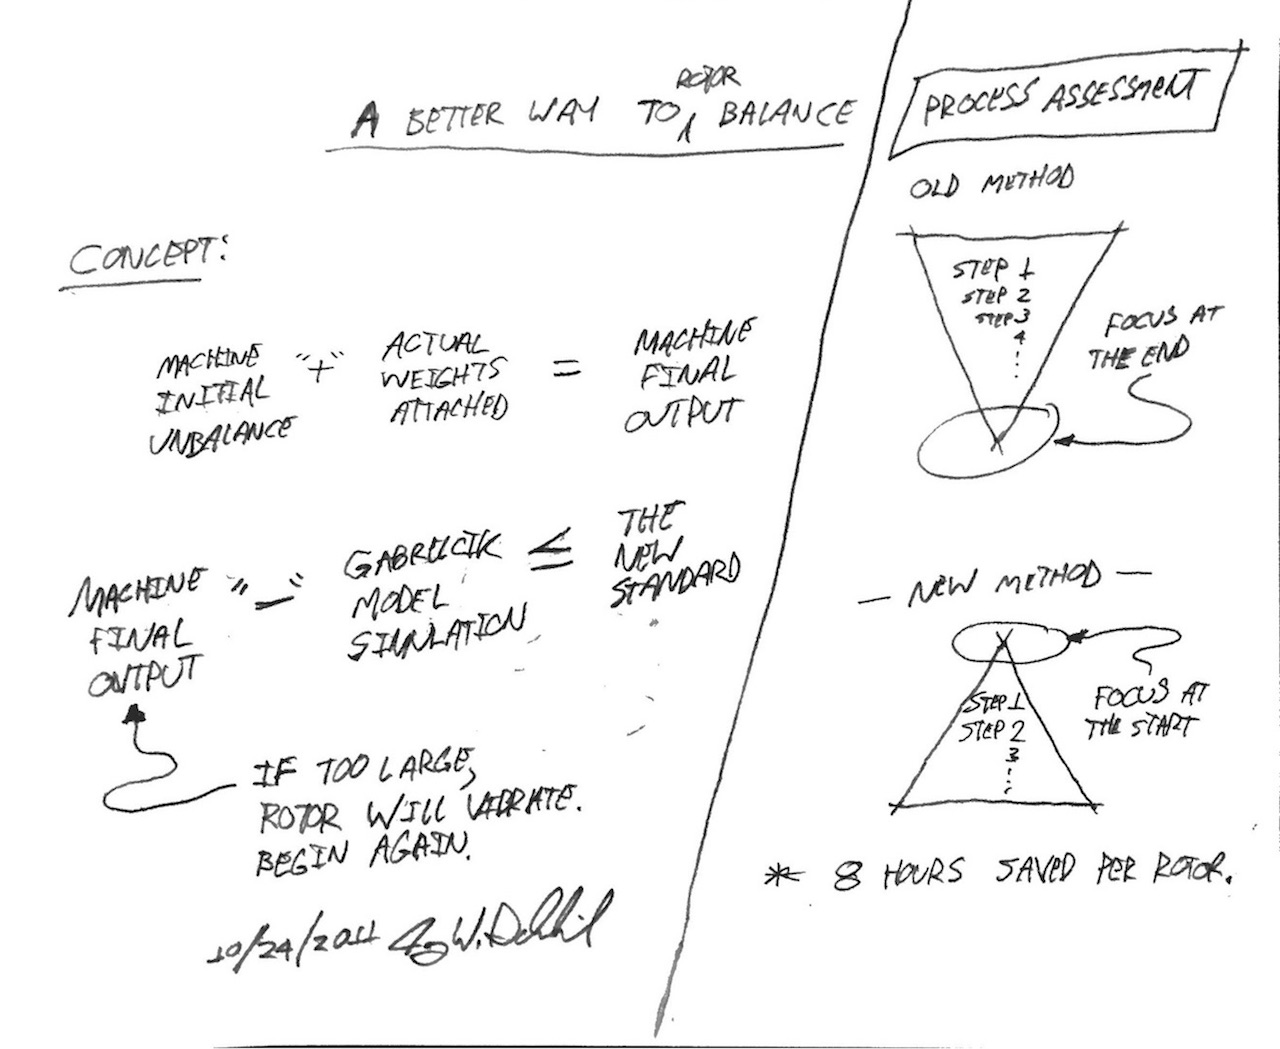 A BETTER WAY TO ROTOR BALANCE
CONCEPT:
MACHINE
INITIAL
UNBALANCE
"+"
ACTUAL
WEIGHTS
ATTACHED
=
MACHINE
FINAL
OUTPUT
MACHINE
FINAL
OUTPUT
"-"
MODEL
SIMULATION
≤
THE
NEW
STANDARD
IF TOO LARGE,
ROTOR WILL VIBRATE.
BEGIN AGAIN.
10/24/2011
PROCESS ASSESSMENT
OLD METHOD
STEP 1
STEP 2
STEP 3
4
FOCUS AT
THE END
— NEW METHOD —
STEP 1
STEP 2
3
FOCUS AT
THE START
* 8 HOURS SAVED PER ROTOR.